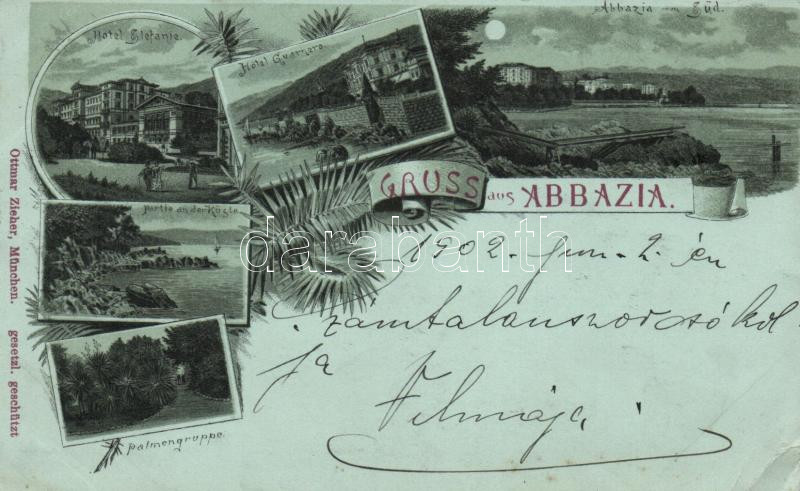 Hotel Stefanie.
Hotel Quarnaro.
Abbazia vom Süd.
GRUSS aus ABBAZIA.
Partie an der Küste
Palmengruppe.
Ottmar Zieher, München. gesetzl. geschützt
darabanth
1902. Jun. 2. én
számtalanszor csókol
ja Vilmája